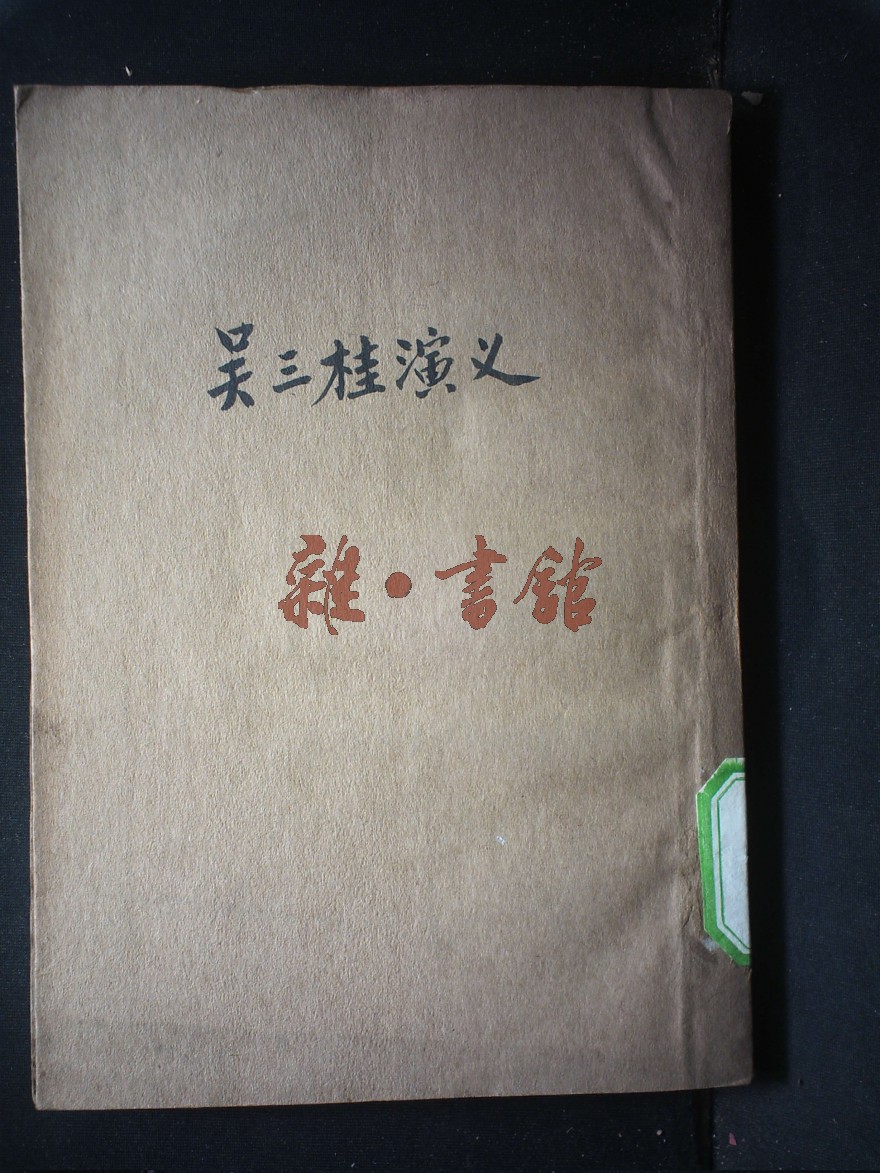 吴三桂演义
雜·書館